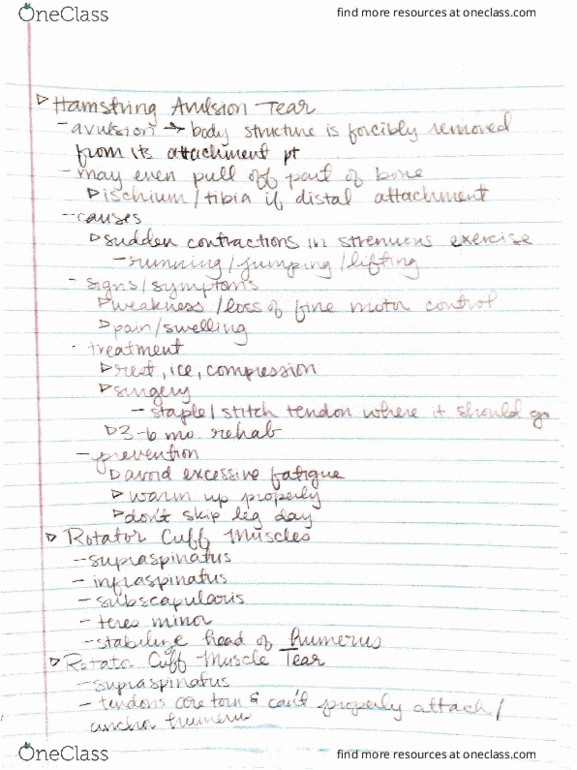 OneClass
find more resources at oneclass.com
▷ Hamstring Avulsion Tear
- avulsion → body structure is forcibly removed
from its attachment pt
- may even pull off part of bone
▷ ischium/tibia if distal attachment
- causes
▷ sudden contractions in strenuous exercise
- running/jumping/lifting
- signs/symptoms
▷ weakness/loss of fine motor control
▷ pain/swelling
- treatment
▷ rest, ice, compression
▷ surgery
- staple/stitch tendon where it should go
▷ 3-6 mo. rehab
- prevention
▷ avoid excessive fatigue
▷ warm up properly
▷ don't skip leg day
▷ Rotator Cuff Muscles
- supraspinatus
- infraspinatus
- subscapularis
- teres minor
- stabilize head of humerus
▷ Rotator Cuff Muscle Tear
- supraspinatus
- tendons are torn & can't properly attach/
anchor humerus
OneClass
find more resources at oneclass.com